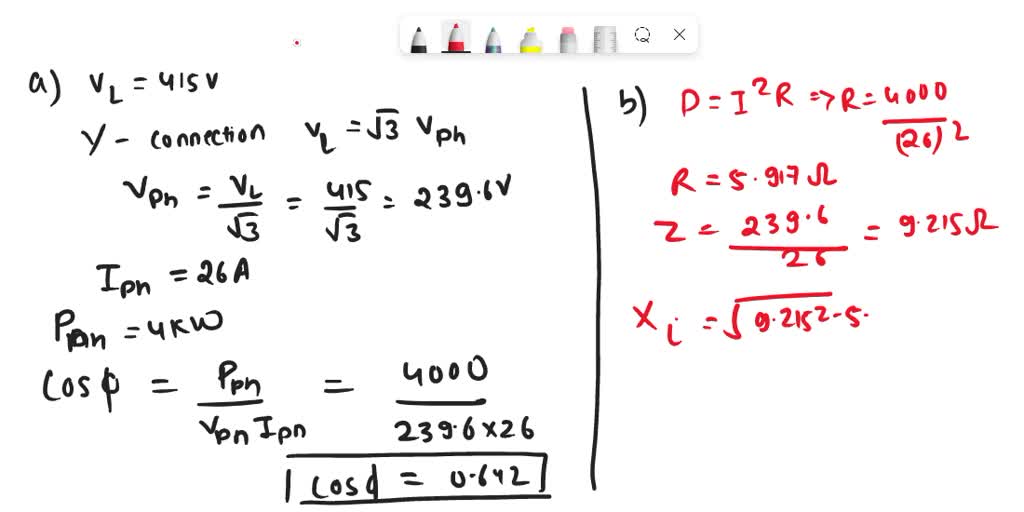 a) V_L = 415V
Y - connection V_L = √3 V_ph
V_ph = V_L/√3 = 415/√3 = 239.6V
I_ph = 26A
P_ph = 4KW
cosφ = P_ph/(V_ph I_ph) = 4000/(239.6×26)
cosφ = 0.642
b) P = I²R => R = 4000/(26)²
R = 5.917Ω
Z = 239.6/26 = 9.215Ω
X_i = √9.215²-5.